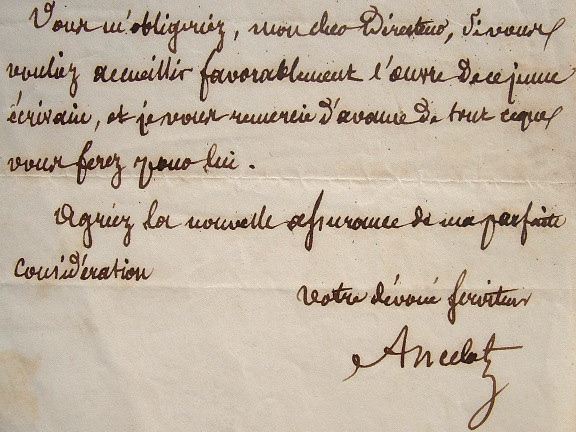 Vous m'obligeriez, mon cher Directeur, si vous
vouliez accueillir favorablement l'œuvre de ce jeune
écrivain, et je vous remercie d'avance de tout ce que
vous ferez pour lui.
Agréez la nouvelle assurance de ma parfaite
considération
votre dévoué serviteur
Ancelot